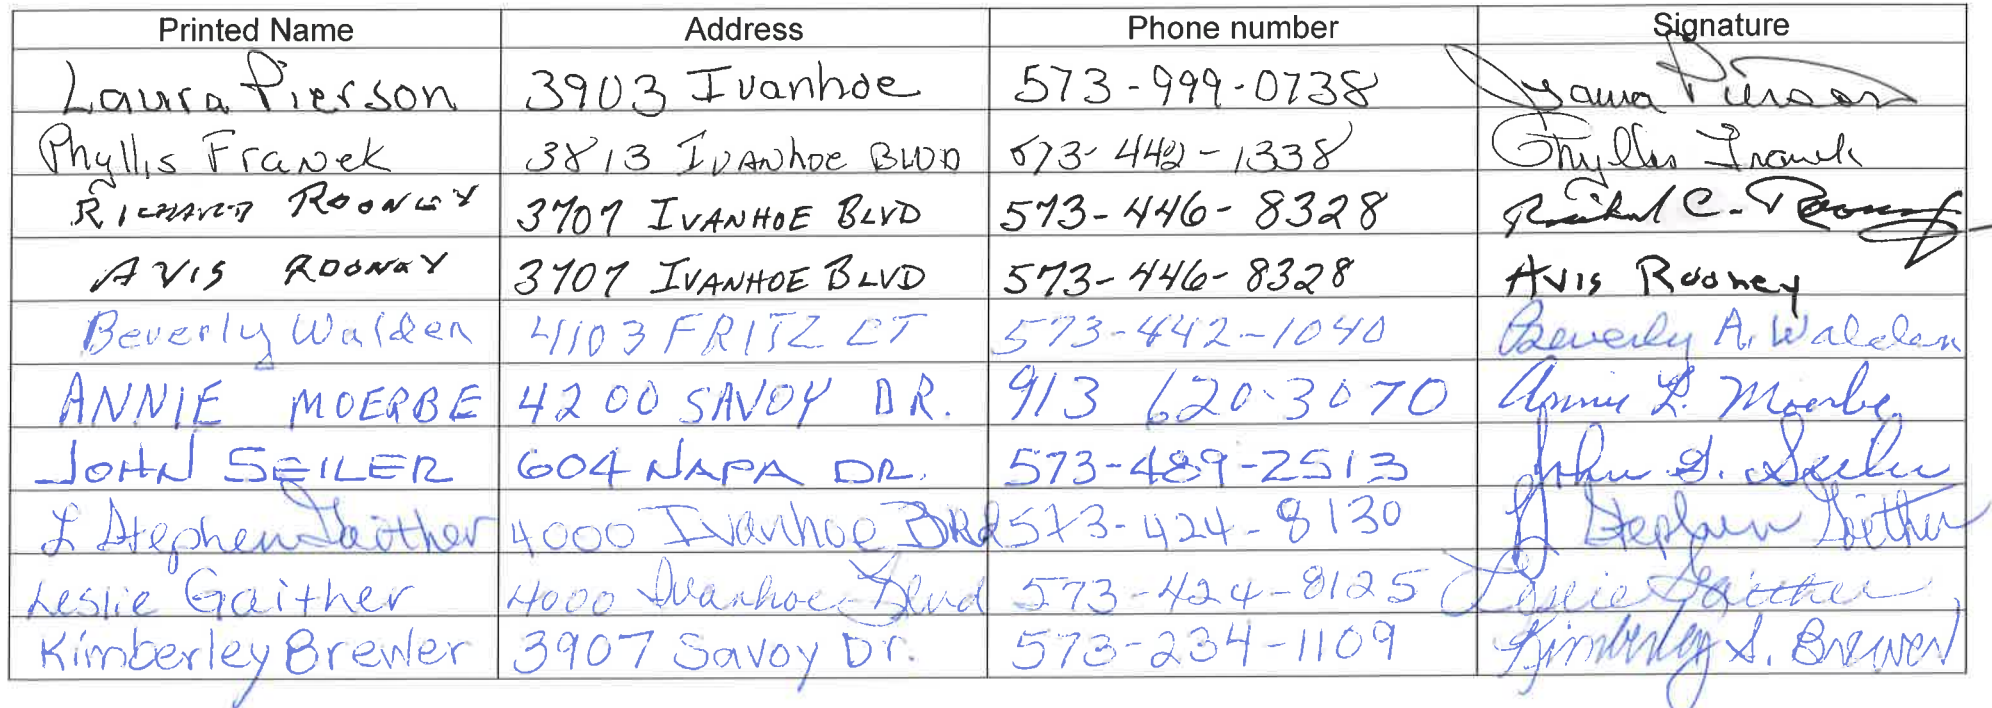 Printed Name Address Phone number Signature
Laura Pierson 3903 Ivanhoe 573-999-0738 Laura Pierson
Phyllis Franek 3813 IVANhoe BLVD 573-442-1338 Phyllis Franek
RICHARD ROONEY 3707 IVANHOE BLVD 573-446-8328 Richard C. Rooney
AVIS ROONEY 3707 IVANHOE BLVD 573-446-8328 Avis Rooney
Beverly Walden 4103 FRITZ CT 573-442-1040 Beverly A. Walden
ANNIE MOERBE 4200 SAVOY DR. 913 620-3070 Annie L. Moerbe
JOHN SEILER 604 NAPA DR. 573-489-2513 John G. Seiler
L Stephen Gaither 4000 Ivanhoe Blvd 573-424-8130 L Stephen Gaither
Leslie Gaither 4000 Ivanhoe Blvd 573-424-8125 Leslie Gaither
Kimberley Brewer 3907 Savoy Dr. 573-234-1109 Kimberley S. Brewer